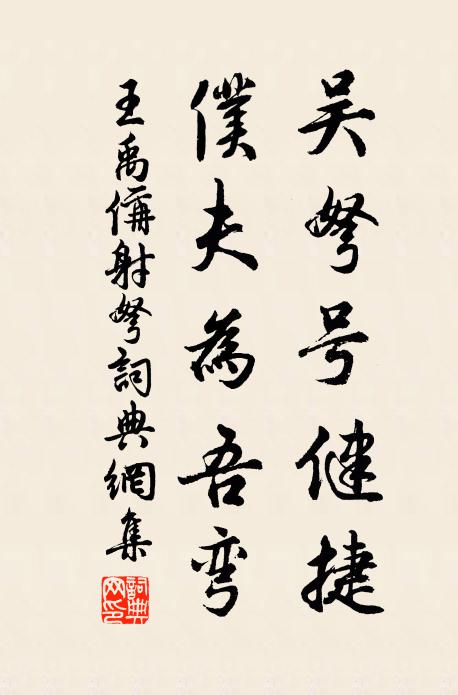 吴弩号健捷
僕夫為吾弯
王禹偁射弩詞典網集
詞典網印